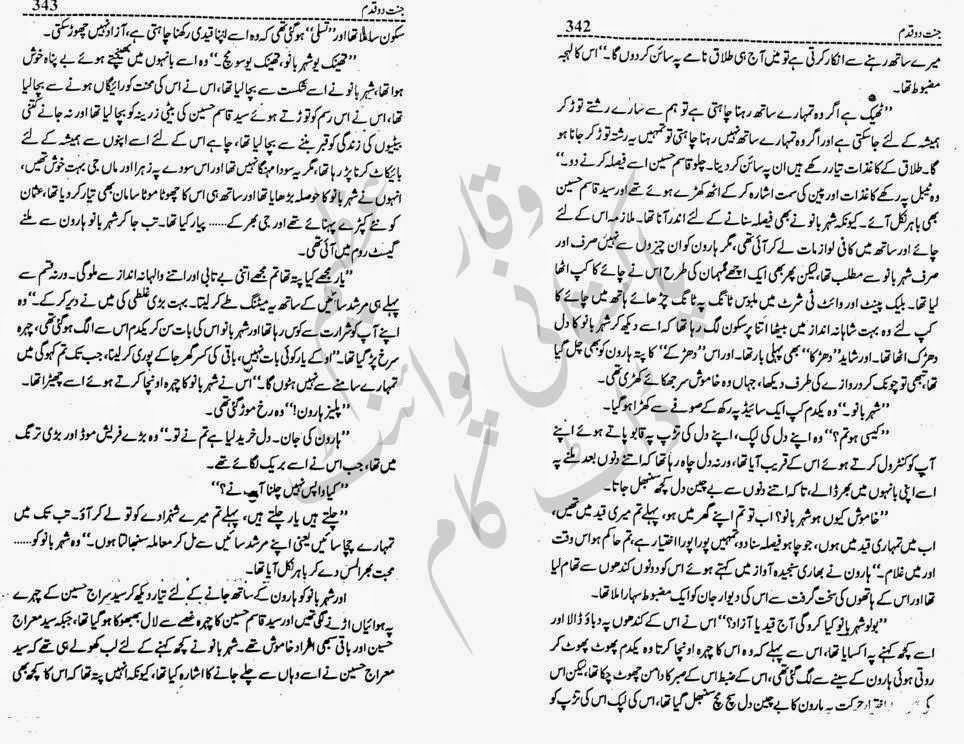 جنت دو قدم
342
میرے ساتھ رہنے سے انکار کرتی ہے تو میں آج ہی طلاق نامے پہ سائن کر دوں گا۔‘‘ اس کا لہجہ
مضبوط تھا۔
’’ٹھیک ہے اگر وہ تمہارے ساتھ رہنا چاہتی ہے تو ہم سے سارے رشتے توڑ کر
ہمیشہ کے لئے جا سکتی ہے اور اگر وہ تمہارے ساتھ نہیں رہنا چاہتی تو تمہیں یہ رشتہ توڑ کر جانا ہو
گا۔ طلاق کے کاغذات تیار رکھے ہیں ان پہ سائن کر دینا۔ چلو قاسم حسین اسے فیصلہ کرنے دو۔‘‘
وہ ٹیبل پہ رکھے کاغذات اور پین کی سمت اشارہ کر کے اٹھ کھڑے ہوئے تھے اور سید قاسم حسین
بھی باہر نکل آئے۔ کیونکہ شہر بانو نے بھی فیصلہ سنانے کے لئے اندر آنا تھا۔ ملازمہ اس کے لئے
چائے اور ساتھ میں کافی لوازمات لے کر آئی تھی، مگر ہارون کو ان چیزوں سے نہیں صرف اور
صرف شہر بانو سے مطلب تھا، لیکن پھر بھی ایک اچھے مہمان کی طرح اس نے چائے کا کپ اٹھا
لیا تھا۔ بلیک پینٹ اور وائٹ ٹی شرٹ میں ملبوس ٹانگ پہ ٹانگ چڑھائے ہاتھ میں چائے کا
کپ لئے وہ بہت شاہانہ انداز میں بیٹھا اتنا پرسکون لگ رہا تھا کہ اسے دیکھ کر شہر بانو کا دل
دھڑک اٹھا تھا۔ اور شاید ’’دھڑکا‘‘ بھی پہلی بار تھا۔ اور اس ’’دھڑکے‘‘ کا پتہ ہارون کو بھی چل گیا
تھا، تبھی تو چونک کر دروازے کی طرف دیکھا، جہاں وہ خاموش سر جھکائے کھڑی تھی۔
’’شہر بانو۔‘‘ وہ یکدم کپ ایک سائیڈ پہ رکھ کے صوفے سے کھڑا ہو گیا۔
’’کیسی ہو تم؟‘‘ وہ اپنے دل کی لپک، اپنے دل کی تڑپ پہ قابو پاتے ہوئے اپنے
آپ کو کنٹرول کرتے ہوئے اس کے قریب آیا تھا، ورنہ دل چاہ رہا تھا کہ اتنے دنوں بعد ملنے پہ
اسے اپنی بانہوں میں بھر ڈالے، تاکہ اتنے دنوں سے بے چین دل کچھ سنبھل جاتا۔
’’خاموش کیوں ہو شہر بانو؟ اب تو تم اپنے گھر میں ہو، پہلے تم میری قید میں تھیں،
اب میں تمہاری قید میں ہوں، جو چاہو فیصلہ سنا دو، تمہیں پورا پورا اختیار ہے، تم حاکم ہو اس وقت
اور میں غلام۔‘‘ ہارون نے بھاری سنجیدہ آواز میں کہتے ہوئے اس کو دونوں کندھوں سے تھام لیا
تھا اور اس کے ہاتھوں کی سخت گرفت سے اس کی دیوار جان کو ایک مضبوط سہارا ملا تھا۔
’’بولو شہر بانو کیا کرو گی آج قید یا آزاد؟‘‘ اس نے اس کے کندھوں پہ دباؤ ڈالا اور
اسے کچھ کہنے پہ اکسایا تھا، اس سے پہلے کہ وہ اس کا چہرہ اونچا کرتا وہ یکدم پھوٹ پھوٹ کر
روتی ہوئی ہارون کے سینے سے لگ گئی تھی، اس کے ضبط اس کے صبر کا دامن چھوٹ چکا تھا، لیکن اس
کی حرکت پہ ہارون کا بے چین دل سچ مچ سنبھل گیا تھا، اس کی لپک اس کی تڑپ کو
جنت دو قدم
343
سکون سا ملا تھا اور ’’تسلی‘‘ ہو گئی تھی کہ وہ اسے اپنا قیدی رکھنا چاہتی ہے، آزاد نہیں چھوڑ سکتی۔
’’تھینک یو شہر بانو، تھینک یو سو مچ۔‘‘ وہ اسے بانہوں میں بھینچتے ہوئے بے پناہ خوش
ہوا تھا، شہر بانو نے اسے شکست سے بچا لیا تھا، اس نے اس کی محنت کو رائیگاں ہونے سے بچا لیا
تھا، اس نے اس رسم کو توڑتے ہوئے سید قاسم حسین کی بیٹی زرینہ کو بچا لیا تھا اور نہ جانے کتنی
بیٹیوں کی زندگی کو قبر بننے سے بچا لیا تھا، چاہے اس کے لئے اسے اپنوں سے ہمیشہ کے لئے
بائیکاٹ کرنا پڑ رہا تھا، مگر یہ سودا مہنگا نہیں تھا اور اس سودے پہ زہرا اور ماں جی بہت خوش تھیں،
انہوں نے شہر بانو کا حوصلہ بڑھایا تھا اور ساتھ ہی اس کا چھوٹا موٹا سامان بھی تیار کر دیا تھا، عثمان
کو نئے کپڑے پہنائے تھے اور جی بھر کے...... پیار کیا تھا۔ تب جا کر شہر بانو ہارون سے ملنے
گیسٹ روم میں آئی تھی۔
’’یار مجھے کیا پتہ تھا تم مجھے اتنی بے تابی اور اتنے والہانہ انداز سے ملو گی۔ ورنہ قسم سے
پہلے ہی مرشد سائیں کے ساتھ یہ میٹنگ طے کر لیتا۔ بہت بڑی غلطی کی میں نے دیر کر کے۔‘‘ وہ
اپنے آپ کو شرارت سے کوس رہا تھا اور شہر بانو اس کی بات سن کر یکدم اس سے الگ ہو گئی تھی، چہرہ
سرخ پڑ گیا تھا۔ ’’او کے یار کوئی بات نہیں، باقی کی کسر گھر جا کے پوری کر لینا، جب تک تم کہو گی میں
تمہارے سامنے سے نہیں ہٹوں گا۔‘‘ اس نے شہر بانو کا چہرہ اونچا کرتے ہوئے اسے چھیڑا تھا۔
’’پلیز ہارون!‘‘ وہ رخ موڑ گئی تھی۔
’’ہارون کی جان۔ دل خرید لیا ہے تم نے تو۔‘‘ وہ بڑے فریش موڈ اور بڑی ترنگ
میں تھا، جب اس نے اسے بریک لگائے تھے۔
’’کیا واپس نہیں چلنا آپ نے؟‘‘
’’چلتے ہیں یار چلتے ہیں، پہلے تم میرے شہزادے کو تو لے کر آؤ۔ تب تک میں
تمہارے چچا سائیں یعنی اپنے مرشد سائیں سے مل کر معاملہ سنبھالتا ہوں۔‘‘ وہ شہر بانو کو......
محبت بھرا لمس دے کر باہر نکل آیا تھا۔
اور شہر بانو کو ہارون کے ساتھ جانے کے لئے تیار دیکھ کر سید سراج حسین کے چہرے
پہ ہوائیاں اڑنے لگی تھیں اور سید قاسم حسین کا چہرہ غصے سے لال بھبھوکا ہو گیا تھا، جبکہ سید معراج
حسین اور باقی سبھی افراد خاموش تھے۔ شہر بانو نے کچھ کہنے کے لئے لب کھولے ہی تھے کہ سید
معراج حسین نے اسے وہاں سے چلے جانے کا اشارہ کیا تھا، کیونکہ انہیں پتہ تھا کہ اس کا کچھ بھی
پاکستانی پوائنٹ
ڈاٹ کام